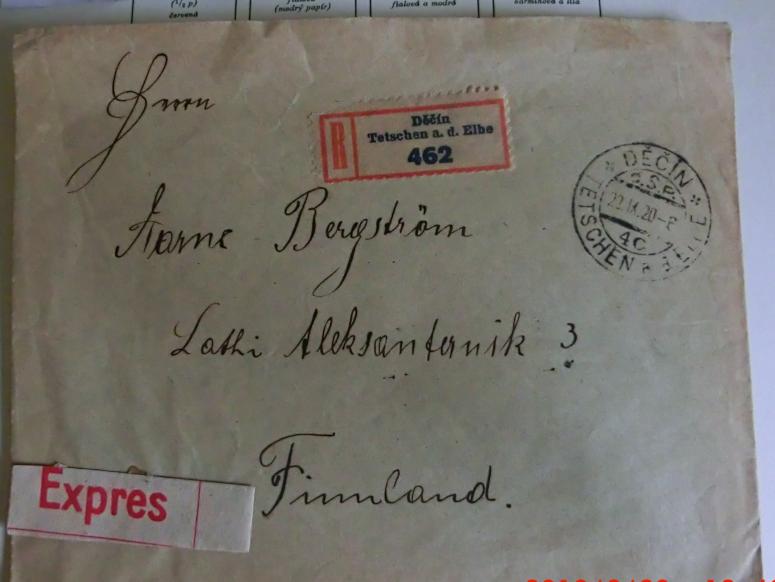 (½ p)
červená
(modrý papír)
fialová a modrá
karmínová a lila
Herrn
R
Děčín
Tetschen a. d. Elbe
462
* DĚČÍN *
Č.S.P.
22.IX.20-
4C
TETSCHEN a. ELBE
Aarne Bergström
Lathi Aleksanternik 3
Expres
Finnland.